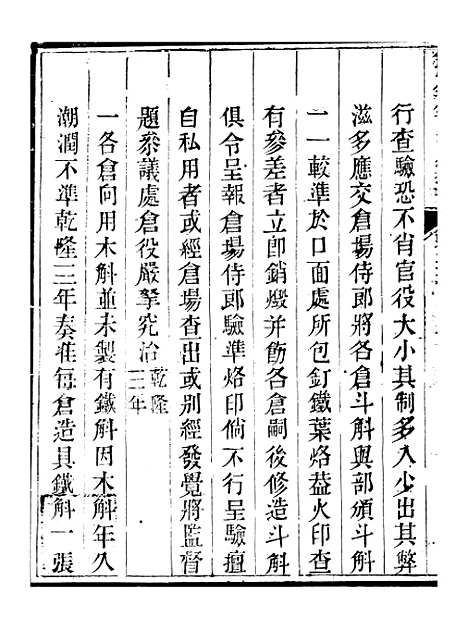 行查驗恐不肖官役大小其制多入少出其弊
滋多應交倉場侍郎將各倉斗斛與部頒斗斛
一一較準於口面處所包釘鐵葉烙葢火印查
有參差者立卽銷燬并飭各倉嗣後修造斗斛
俱令呈報倉場侍郎驗準烙印倘不行呈驗擅
自私用者或經倉塲查出或别經發覺將監督
題叅議處倉役嚴拏究治乾隆三年
一各倉向用木斛並未製有鐵斛因木斛年久
潮濶不準乾隆三年奏准每倉造具鐵斛一張